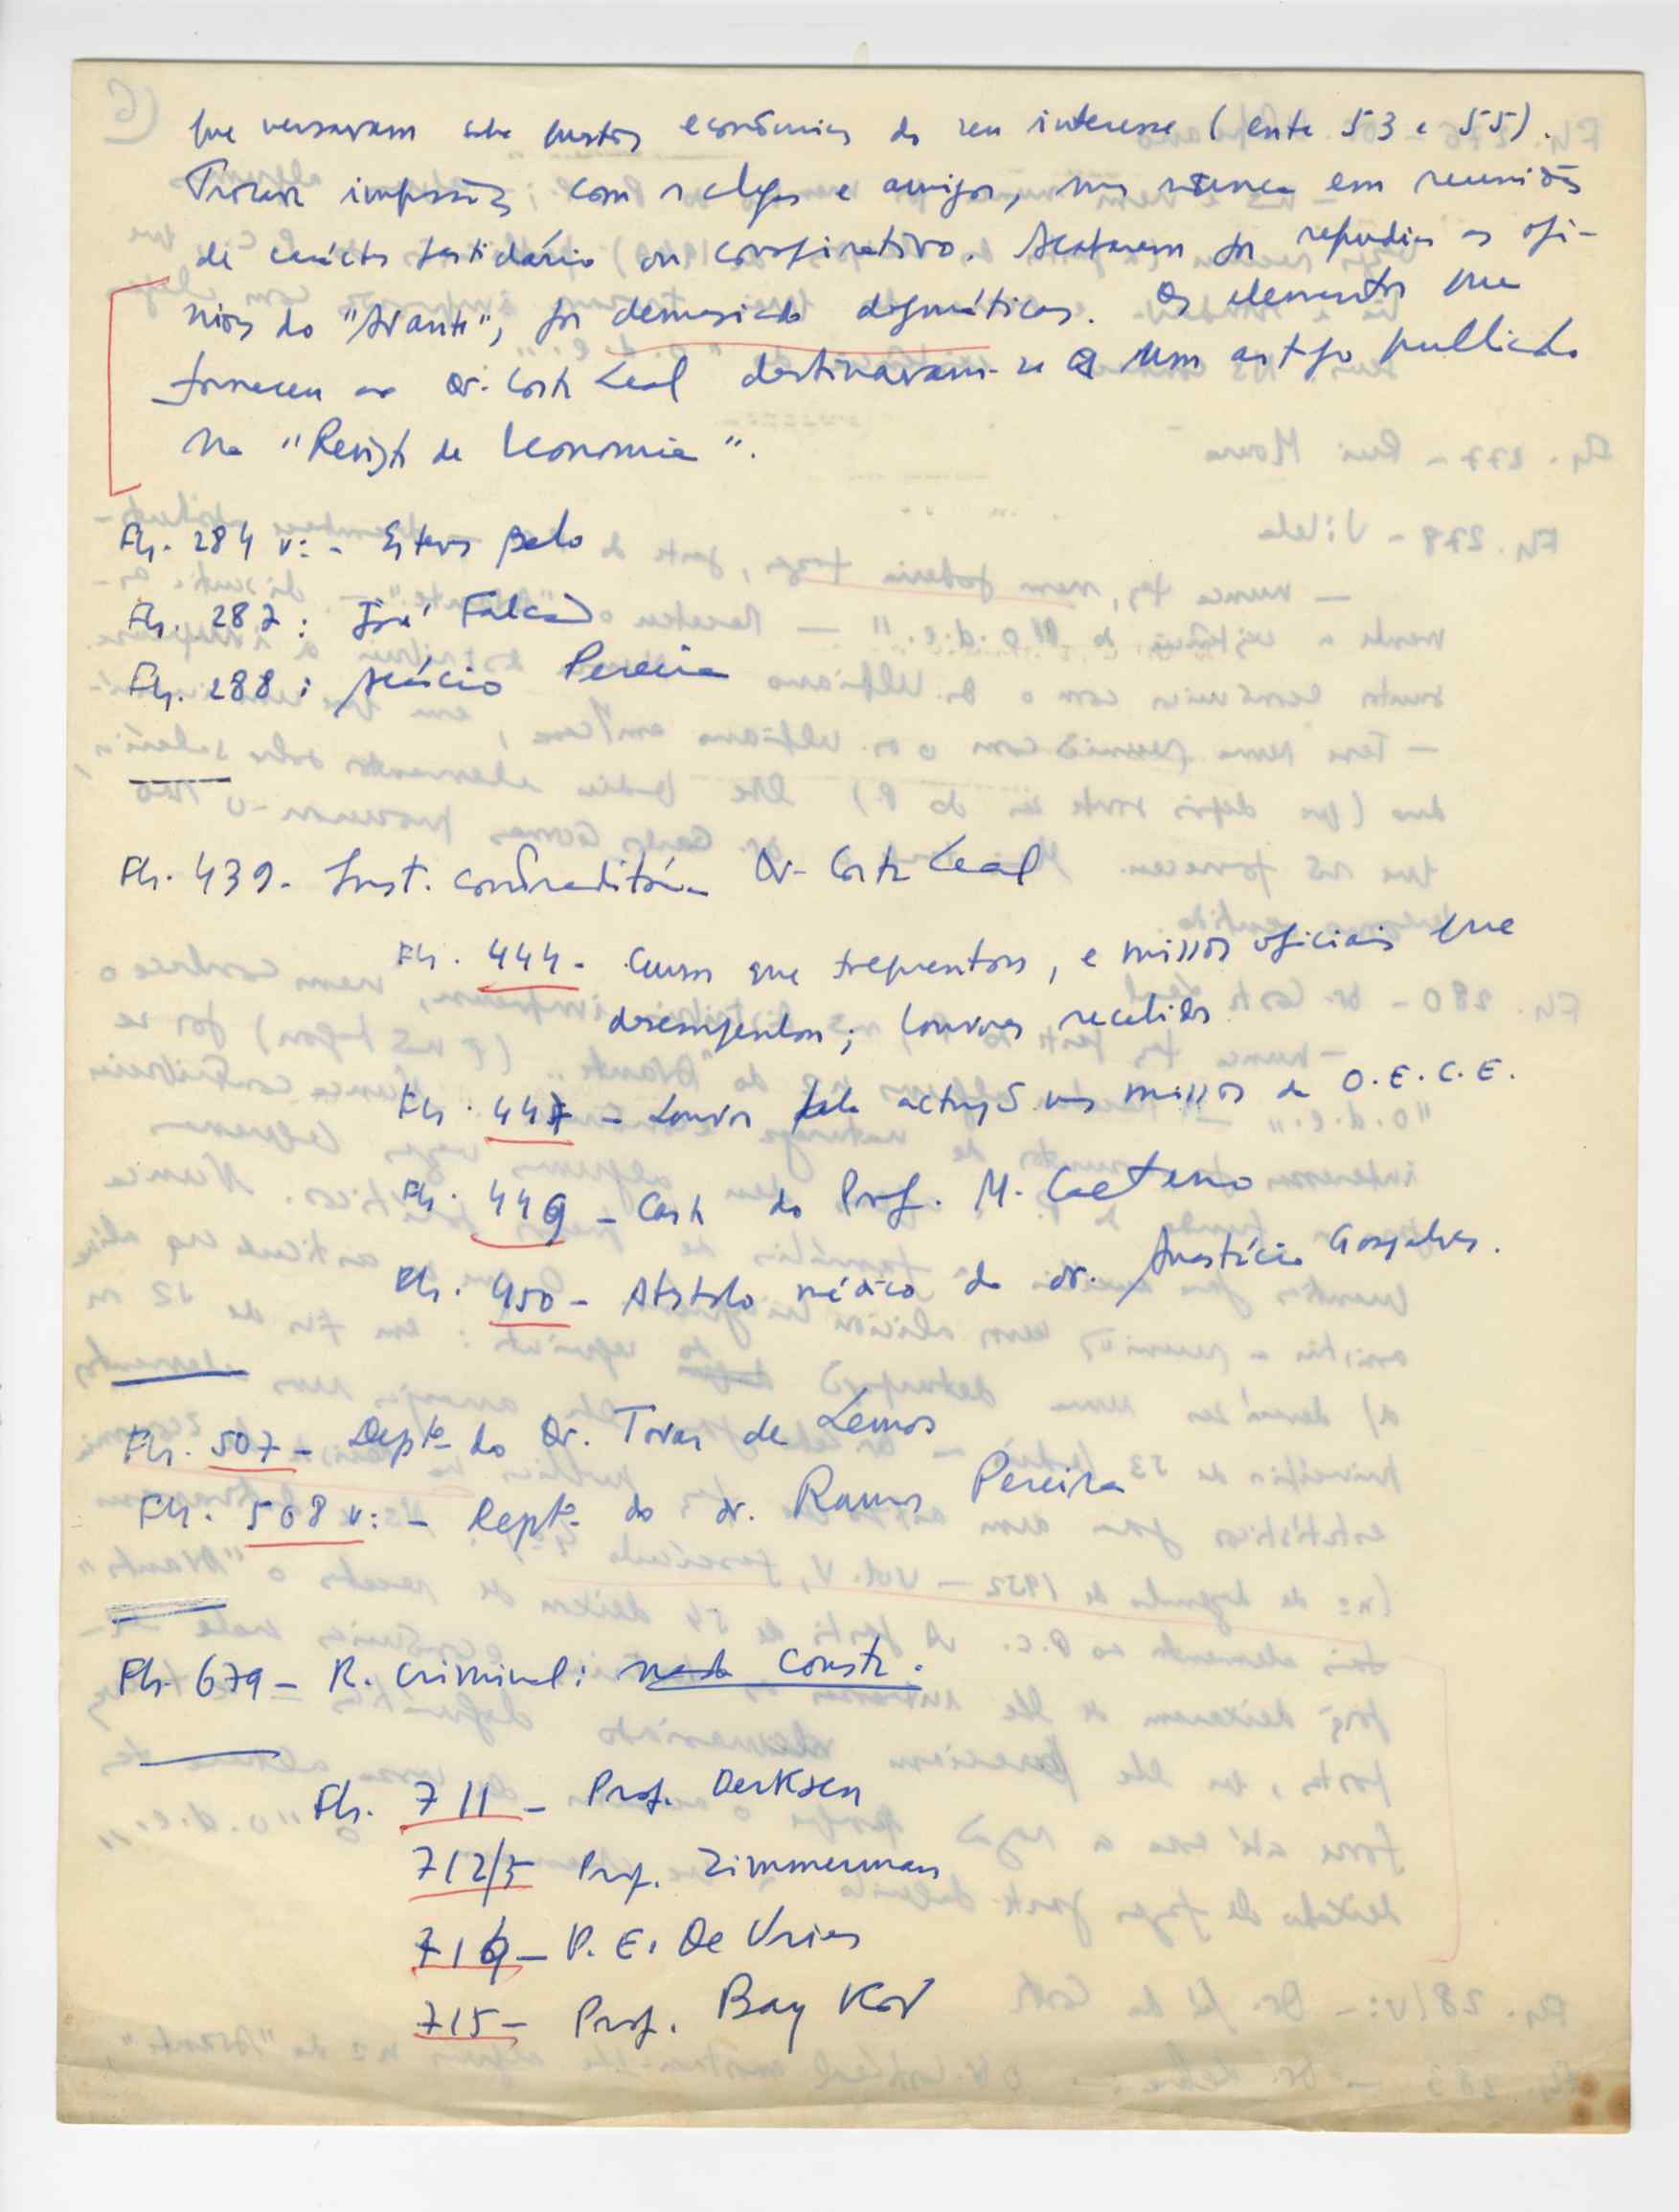 que versavam sobre questões económicas do seu interesse (entre 53 e 55).
Trocar impressões com colegas e amigos, mas nunca em reuniões
de carácter partidário ou conspirativo. Acabaram por repudiar as opi-
niões do "Avante", por demasiado dogmáticas. Os elementos que
forneceu ao Dr. Costa Leal destinavam-se a um artigo publicado
na "Revista de Economia".
Fls. 284 v: - Esteves Belo
Fls. 287: José Falcão
Fls. 288: Acácio Pereira
Fls. 439 - Inst. contraditória Dr. Costa Leal
Fls. 444 - Cursos que frequentou, e missões oficiais que
desempenhou; louvores recebidos
Fls. 447 - Louvor pela actuação nas missões da O.E.C.E.
Fls. 449 - Carta do Prof. M. Caetano
Fls. 450 - Atestado médico do dr. Anastácio Gonçalves.
Fls. 507 - Deptº. do Dr. Tovar de Lemos
Fls. 508 v: - Deptº. do dr. Ramos Pereira
Fls. 679 - R. Criminal: nada consta.
Fls. 711 - Prof. Derksen
712/3 Prof. Zimmerman
716 - P. E. De Vries
715 - Prof. Bay